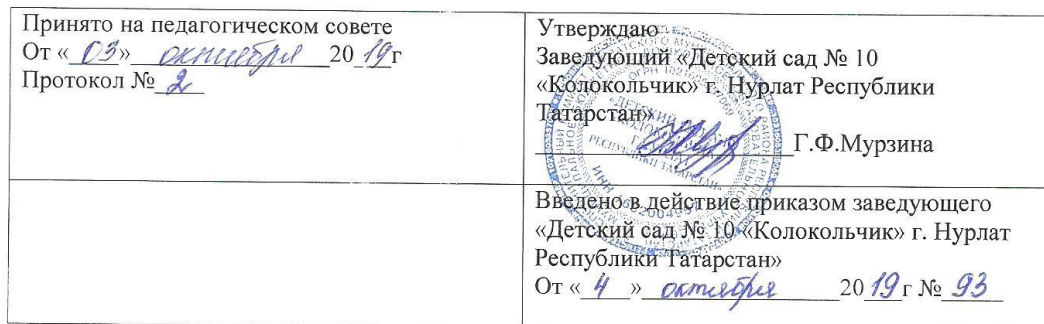 Принято на педагогическом совете
От «03» октября 2019г
Протокол № 2
Утверждаю
Заведующий «Детский сад № 10
«Колокольчик» г. Нурлат Республики
Татарстан»
Г.Ф.Мурзина
Введено в действие приказом заведующего
«Детский сад № 10 «Колокольчик» г. Нурлат
Республики Татарстан»
От «4» октября 2019г № 93